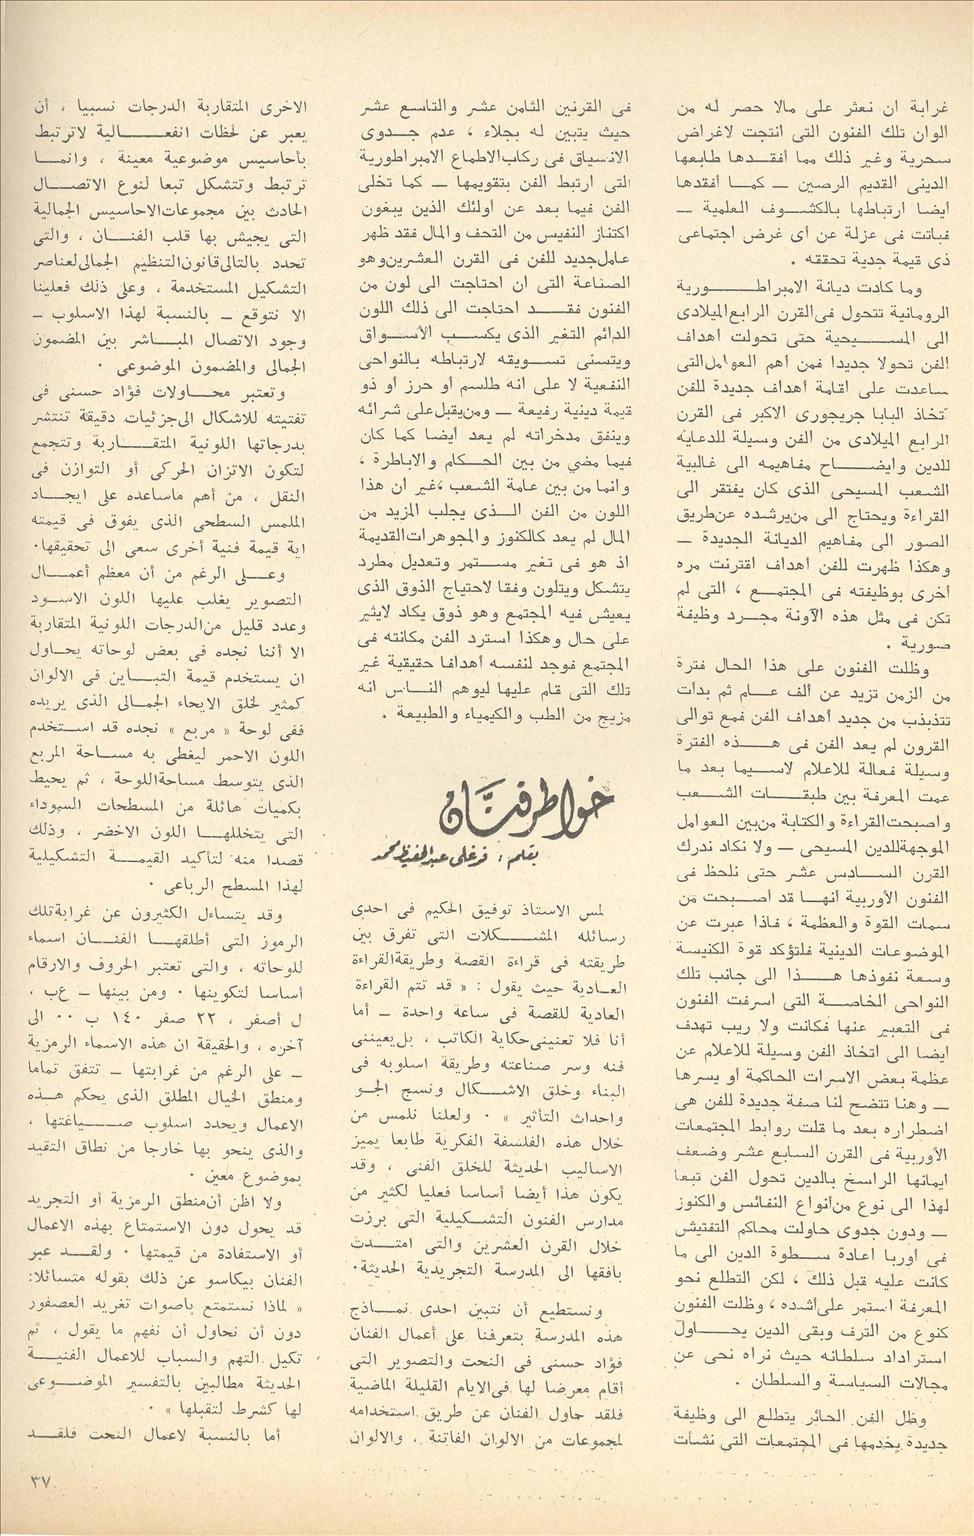 غرابة ان نعثر على مالا حصر له من
الوان تلك الفنون التى انتجت لاغراض
سحرية وغير ذلك مما أفقدها طابعها
الدينى القديم الرصين ــ كما أفقدها
أيضا ارتباطها بالكشوف العلمية ــ
فباتت فى عزلة عن أى غرض اجتماعى
ذى قيمة جدية تحققه .
وما كادت ديانة الامبراطورية
الرومانية تتحول فى القرن الرابع الميلادى
الى المسيحية حتى تحولت أهداف
الفن تحولا جديدا فمن أهم العوامل التى
ساعدت على اقامة أهداف جديدة للفن
اتخاذ البابا جريجورى الاكبر فى القرن
الرابع الميلادى من الفن وسيلة للدعاية
للدين وايضاح مفاهيمه الى غالبية
الشعب المسيحى الذى كان يفتقر الى
القراءة ويحتاج الى من يرشده عن طريق
الصور الى مفاهيم الديانة الجديدة ــ
وهكذا ظهرت للفن أهداف اقترنت مره
أخرى بوظيفته فى المجتمع ، التى لم
تكن فى مثل هذه الآونة مجرد وظيفة
صورية .
وظلت الفنون على هذا الحال فترة
من الزمن تزيد عن ألف عام ثم بدأت
تتذبذب من جديد أهداف الفن فمع توالى
القرون لم يعد الفن فى هذه الفترة
وسيلة فعالة للاعلام لاسيما بعد ما
عمت المعرفة بين طبقات الشعب
واصبحت القراءة والكتابة من بين العوامل
الموجهة للدين المسيحى ــ ولا نكاد ندرك
القرن السادس عشر حتى نلحظ فى
الفنون الأوربية أنها قد أصبحت من
سمات القوة والعظمة ، فاذا عبرت عن
الموضوعات الدينية فلتؤكد قوة الكنيسة
وسعة نفوذها هذا الى جانب تلك
النواحى الخاصة التى اسرفت الفنون
فى التعبير عنها فكانت ولا ريب تهدف
أيضا الى اتخاذ الفن وسيلة للاعلام عن
عظمة بعض الاسرات الحاكمة أو يسرها
ــ وهنا تتضح لنا صفة جديدة للفن هى
اضطراره بعد ما قلت روابط المجتمعات
الأوربية فى القرن السابع عشر وضعف
ايمانها الراسخ بالدين تحول الفن تبعا
لهذا الى نوع من أنواع النفائس والكنوز
ــ ودون جدوى حاولت محاكم التفتيش
فى اوربا اعادة سطوة الدين الى ما
كانت عليه قبل ذلك ، لكن التطلع نحو
المعرفة استمر على أشده ، وظلت الفنون
كنوع من الترف وبقى الدين يحاول
استرداد سلطانه حيث نراه نحى عن
مجالات السياسة والسلطان .
وظل الفن الحائر يتطلع الى وظيفة
جديدة يخدمها فى المجتمعات التى نشأت
فى القرنين الثامن عشر والتاسع عشر
حيث يتبين له بجلاء ، عدم جدوى
الانسياق فى ركاب الاطماع الامبراطورية
التى ارتبط الفن بتقويمها ــ كما تخلى
الفن فيما بعد عن أولئك الذين يبغون
اكتناز النفيس من التحف والمال فقد ظهر
عامل جديد للفن فى القرن العشرين وهو
الصناعة التى ان احتاجت الى لون من
الفنون فقد احتاجت الى ذلك اللون
الدائم التغير الذى يكسب الأسواق
ويتسنى تسويقه لارتباطه بالنواحى
النفعية لا على انه طلسم أو حرز أو ذو
قيمة دينية رفيعة ــ ومن يقبل على شرائه
وينفق مدخراته لم يعد أيضا كما كان
فيما مضى من بين الحكام والاباطرة ،
وانما من بين عامة الشعب ، غير ان هذا
اللون من الفن الذى يجلب المزيد من
المال لم يعد كالكنوز والمجوهرات القديمة
اذ هو فى تغير مستمر وتعديل مطرد
يتشكل ويتلون وفقا لاحتياج الذوق الذى
يعيش فيه المجتمع وهو ذوق يكاد لايثبر
على حال وهكذا استرد الفن مكانته فى
المجتمع فوجد لنفسه أهدافا حقيقية غير
تلك التى قام عليها ليوهم الناس انه
مزيج من الطب والكيمياء والطبيعة .
خواطر فنَّان
بقلم : فرغلى عبد الحفيظ محمد
لمس الاستاذ توفيق الحكيم فى احدى
رسائله المشكلات التى تفرق بين
طريقته فى قراءة القصة وطريقة القراءة
العادية حيث يقول : « قد تتم القراءة
العادية للقصة فى ساعة واحدة ــ أما
أنا فلا تعنينى حكاية الكاتب ، بل يعيننى
فنه وسر صناعته وطريقة اسلوبه فى
البناء وخلق الاشكال ونسج الجو
واحداث التأثير » . ولعلنا نلمس من
خلال هذه الفلسفة الفكرية طابعا يميز
الاساليب الحديثة للخلق الفنى ، وقد
يكون هذا أيضا أساسا فعليا لكثير من
مدارس الفنون التشكيلية التى برزت
خلال القرن العشرين والتى امتدت
بافقها الى المدرسة التجريدية الحديثة .
ونستطيع أن نتبين احدى نماذج
هذه المدرسة بتعرفنا على أعمال الفنان
فؤاد حسنى فى النحت والتصوير التى
أقام معرضا لها فى الايام القليلة الماضية
فلقد حاول الفنان عن طريق استخدامه
لمجموعات من الالوان الفاتنة ، والالوان
الاخرى المتقاربة الدرجات نسبيا ، أن
يعبر عن لحظات انفعالية لاترتبط
بأحاسيس موضوعية معينة ، وانما
ترتبط وتتشكل تبعا لنوع الاتصال
الحادث بين مجموعات الاحاسيس الجمالية
التى يجيش بها قلب الفنان ، والتى
تحدد بالتالى قانون التنظيم الجمالى لعناصر
التشكيل المستخدمة ، وعلى ذلك فعلينا
الا نتوقع ــ بالنسبة لهذا الاسلوب ــ
وجود الاتصال المباشر بين المضمون
الجمالى والمضمون الموضوعى .
وتعتبر محاولات فؤاد حسنى فى
تفتيته للاشكال الى جزئيات دقيقة تنتشر
بدرجاتها اللونية المتقاربة وتتجمع
لتكون الاتزان الحركى أو التوازن فى
النقل ، من أهم ماساعده على ايجاد
الملمس السطحى الذى يفوق فى قيمته
اية قيمة فنية أخرى سعى الى تحقيقها .
وعلى الرغم من أن معظم أعمال
التصوير يغلب عليها اللون الاسود
وعدد قليل من الدرجات اللونية المتقاربة
الا أننا نجده فى بعض لوحاته يحاول
ان يستخدم قيمة التباين فى الالوان
كمثير لخلق الايحاء الجمالى الذى يريده
ففى لوحة « مربع » نجده قد استخدم
اللون الاحمر ليغطى به مساحة المربع
الذى يتوسط مساحة اللوحة ، ثم يحيط
بكميات هائلة من المسطحات السوداء
التى يتخللها اللون الاخضر ، وذلك
قصدا منه لتأكيد القيمة التشكيلية
لهذا المسطح الرباعى .
وقد يتساءل الكثيرون عن غرابة تلك
الرموز التى أطلقها الفنان اسماء
للوحاته ، والتى تعتبر الحروف والارقام
أساسا لتكوينها . ومن بينها ــ ع ب ،
ل أصفر ، ٢٢ صفر ١٤٠ ب ٠٠ الى
آخره ، والحقيقة ان هذه الاسماء الرمزية
ــ على الرغم من غرابتها ــ تتفق تماما
ومنطق الخيال المطلق الذى يحكم هذه
الاعمال ويحدد اسلوب صياغتها ،
والذى ينحو بها خارجا من نطاق التقيد
بموضوع معين .
ولا اظن أن منطق الرمزية أو التجريد
قد يحول دون الاستمتاع بهذه الاعمال
أو الاستفادة من قيمتها . ولقد عبر
الفنان بيكاسو عن ذلك بقوله متسائلا :
« لماذا نستمتع باصوات تغريد العصفور
دون أن نحاول أن نفهم ما يقول ، ثم
تكيل التهم والسباب للاعمال الفنية
الحديثة مطالبين بالتفسير الموضوعى
لها كشرط لتقبلها » .
أما بالنسبة لاعمال النحت فلقد
٣٧